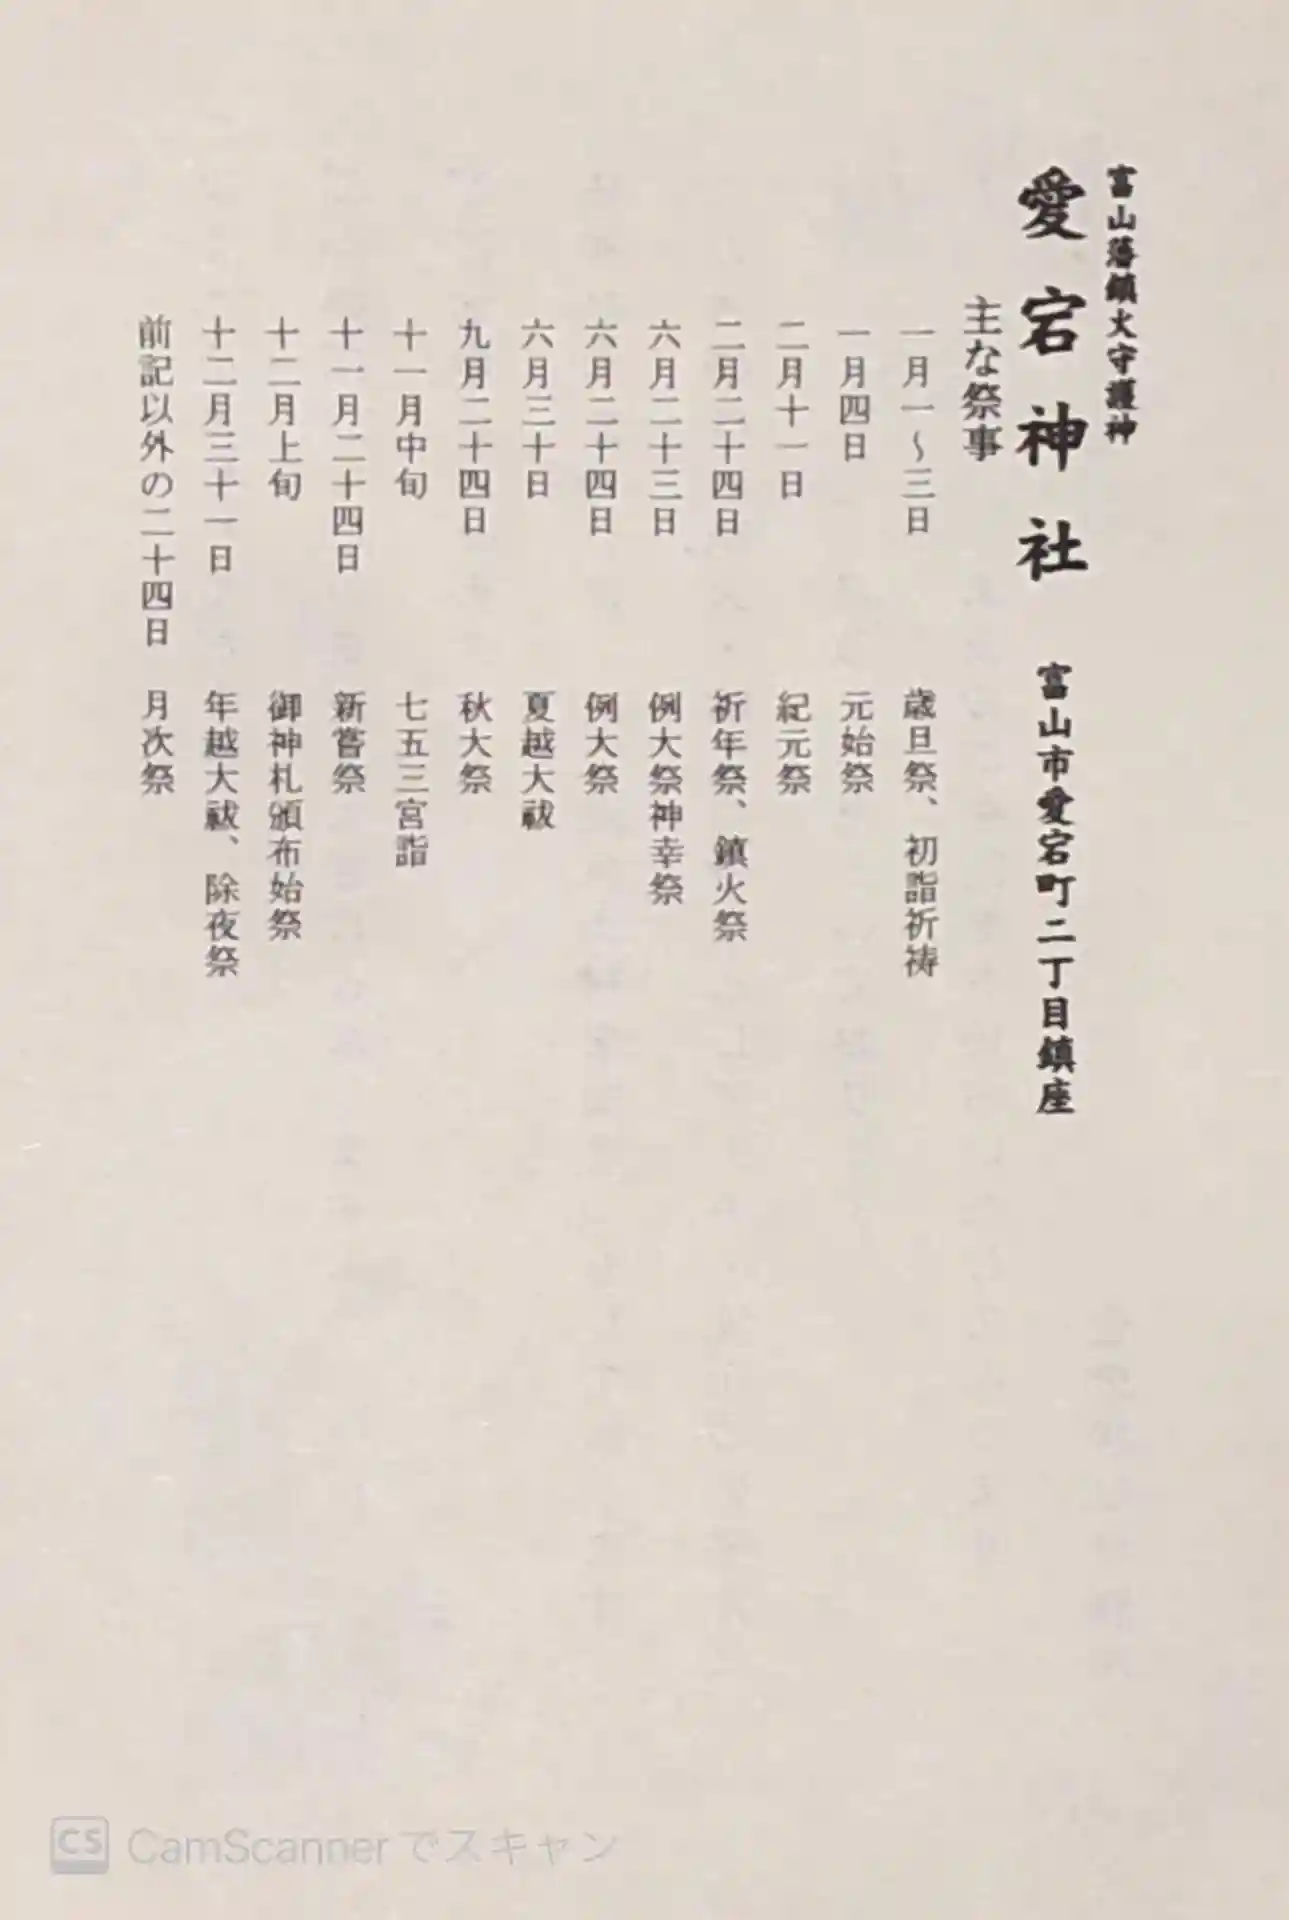 富山藩鎮火守護神
愛宕神社　富山市愛宕町二丁目鎮座
主な祭事
一月一～三日　歳旦祭、初詣祈祷
一月四日　元始祭
二月十一日　紀元祭
二月二十四日　祈年祭、鎮火祭
六月二十三日　例大祭神幸祭
六月二十四日　例大祭
六月三十日　夏越大祓
九月二十四日　秋大祭
十一月中旬　七五三宮詣
十一月二十四日　新嘗祭
十二月上旬　御神札頒布始祭
十二月三十一日　年越大祓、除夜祭
前記以外の二十四日　月次祭
CS CamScannerでスキャン